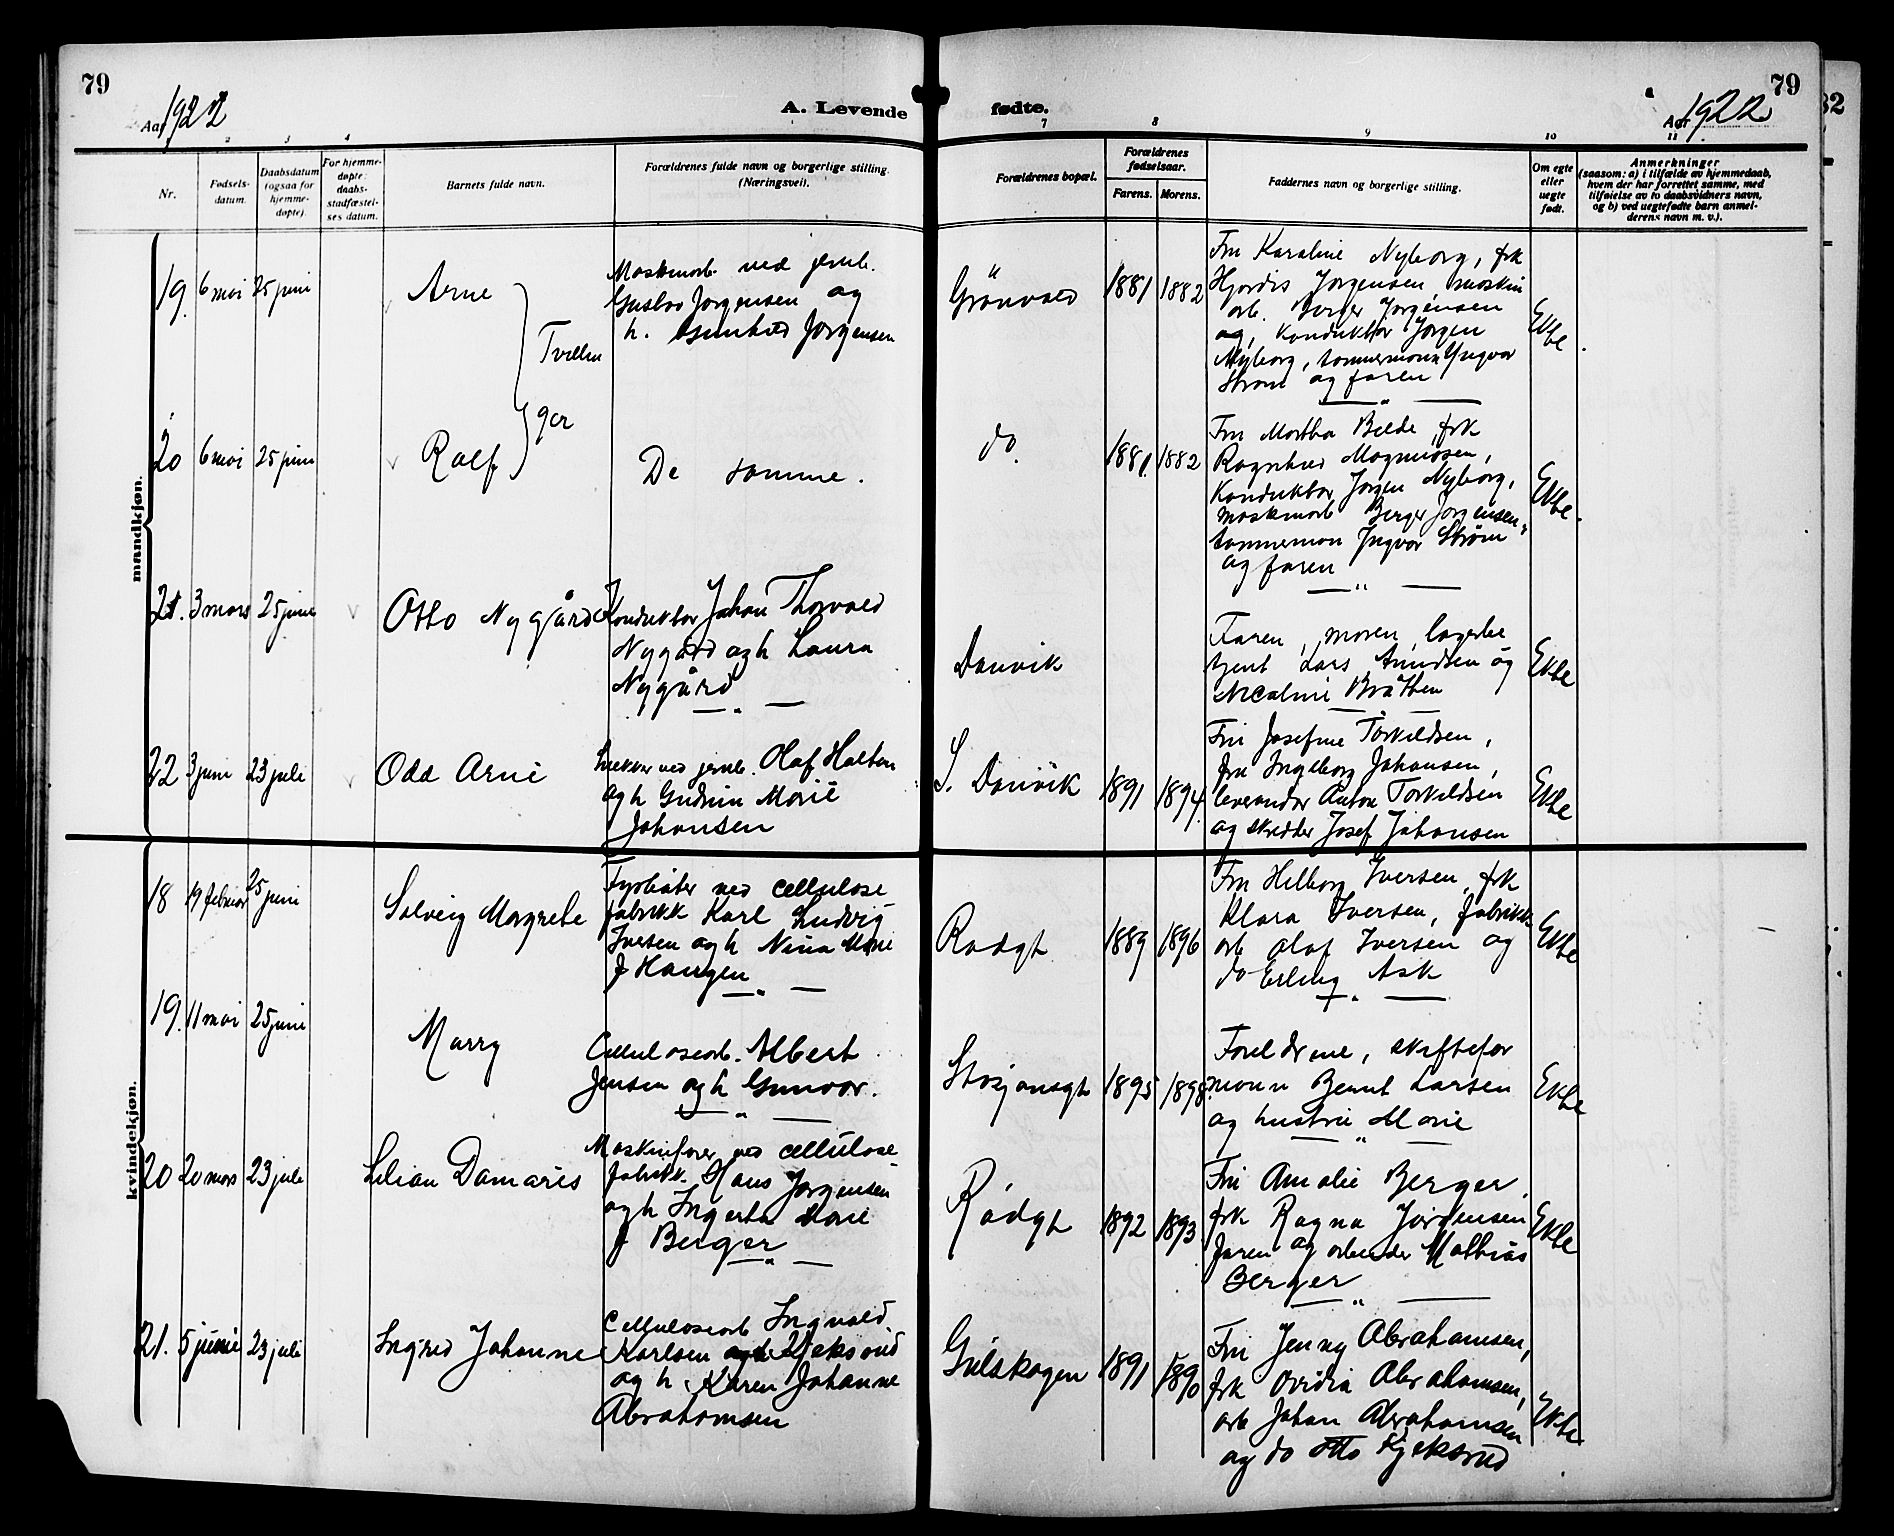 79
Aar 1922
A. Levende
fødte.
79
Aar 1922
82
2 3 4
7 8 9 10 11
Nr.
Fødsels-
datum.
Daabsdatum
(ogsaa for
hjemme-
døpte).
For hjemme-
døpte:
daabs-
stadfæstel-
ses datum.
Barnets fulde navn.
Forældrenes fulde navn og borgerlige stilling.
(Næringsvei).
Forældrenes bopæl.
Forældrenes
fødselsaar.
Farens. Morens.
Faddernes navn og borgerlige stilling.
Om egte
eller
uegte
født.
Anmerkninger
(saasom: a) i tilfælde av hjemmedaab,
hvem der har forrettet samme, med
tilføielse av to daabsvidners navn,
og b) ved uegtefødte barn anmel-
derens navn m. v.).
mandkjøn.
19. 6 mai 25 juni
Arne
Tvillin
ger
Maskinarb. ved jernb.
Gustav Jørgensen og
h. Gunhild Jørgensen
Grønvold
1881 1882
Fru Karaline Nyborg, frk
Hjørdis Jørgensen maskin
arb. Birger Jørgensen
og, konduktør Jørgen
Nyborg, tømmermann Yngvar
Strøm og faren
Ekte
20 6 mai 25 juni
Ralf
De samme.
do.
1881. 1882
Fru Martha Bilde, frk
Ragnhild Magnussen,
Konduktør Jørgen Nyborg,
maskinarb Berger Jørgensen,
tømmerman Yngvar Strøm
og faren
Ekte.
21. 3 mars 25 juni
Otto Nygård
Konduktør Johan Thorvald
Nygård og h Laura
Nygård
Danvik
Faren, moren, lagerbe
tjent Lars Amundsen og
Nicoline Bråthen
Ekte
22 3 juni 23 juli
Odd Arne
Snekker ved jernb. Olaf Holten
og h Gudrun Marie
Johansen
S. Danvik
1891 1894.
Fru Josefine Torkildsen,
fru Ingeborg Johansen,
leverandør Anton Torkildsen
og skredder Josef Johansen
Ekte
kvindekjøn.
18 19 februar 25 juni
Solveig Margrete
Fyrbøter ved cellulose
fabrikk Karl Ludvig
Iversen og h Nina Marie
f Haugen
Rødgt
1889 1896
Fru Hilborg Iversen, frk
Klara Iversen, fabrikk
arb Olaf Iversen og
do Erling Ask
Ekte
19. 11 mai 25 juni
Marry
Celluloserb. Albert
Jensen og h Gunvor.
1895 1898.
Foreldrene, skiftefor
mann Bernt Larsen
og hustru Marie
Ekte
20 20 mars 23 juli
Lilian Damaris
Maskinfører ved cellulose
fabrikk. Hans Jørgensen
og h Ingerta Marie
f Berger
Rødgt
1892 1893
Fru Amalie Berger,
frk Ragna Jørgensen
faren og arbeider Mathias
Berger
Ekte
21. 5 juni 23 juli
Ingrid Johanne
Celluloserb Ingvald.
Karlsen Kjeksrud
og h. Karen Johanne
Abrahamsen
Gulskogen
1891 1890
Fru Jenny Abrahamsen,
frk Ovidia Abrahamsen,
arb Johan Abrahamsen
og do Otto Kjeksrud
Ekte